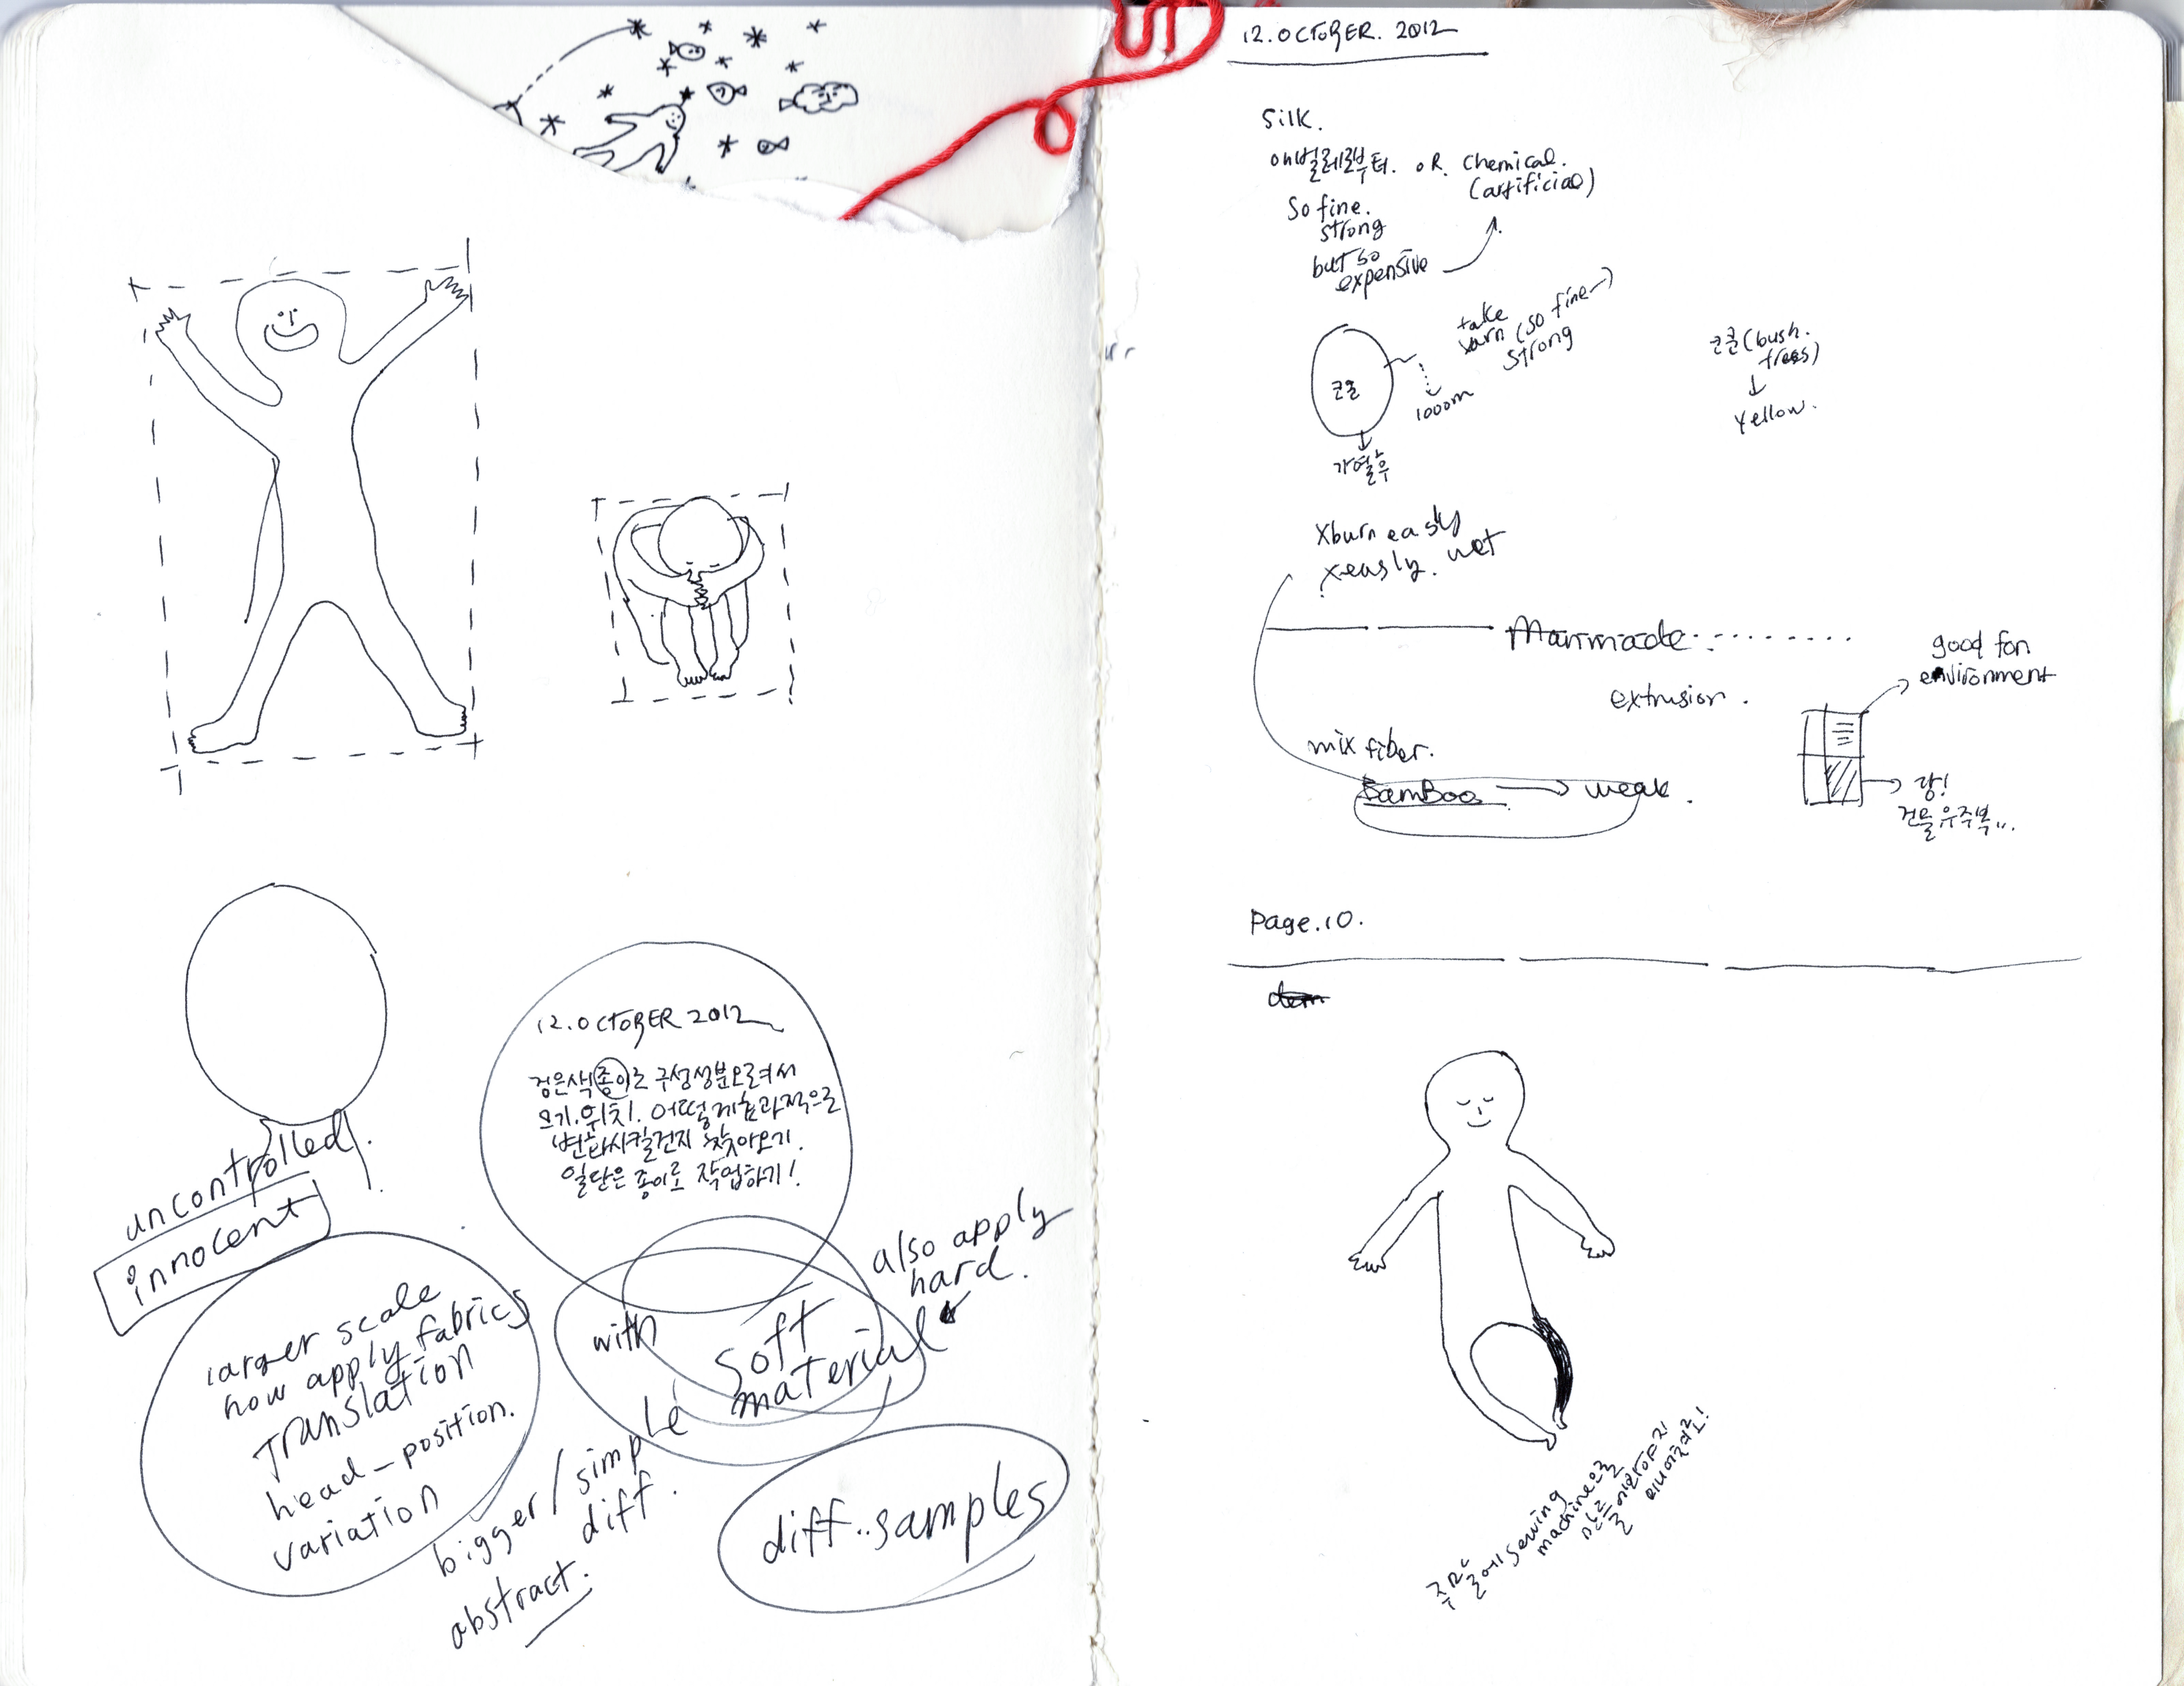 12.OCTOBER 2012
검은색 종이로 구성성분오려서
크기.위치. 어떻게효과적으로
변화시킬건지 찾아오기.
일단은 종이로 작업하기!
uncontrolled.
innocent
larger scale
how apply fabrics
Translation
head-position.
variation
with
soft
material
also apply
hard.
bigger/simple
diff.
abstract.
diff..samples
12.OCTOBER.2012
Silk.
벌레로부터. OR. Chemical.
(artificial)
So fine.
strong
but so
expensive
take
yarn (so fine
strong
1000m
코쿤
가열후
코쿤(bush.
trees)
yellow.
xburn easly
x easly. wet
Manmade.
extrusion.
good for
environment
mix fiber.
BamBoo → weak.
땅!
건물 우주복..
Page.10.
sewing
machine